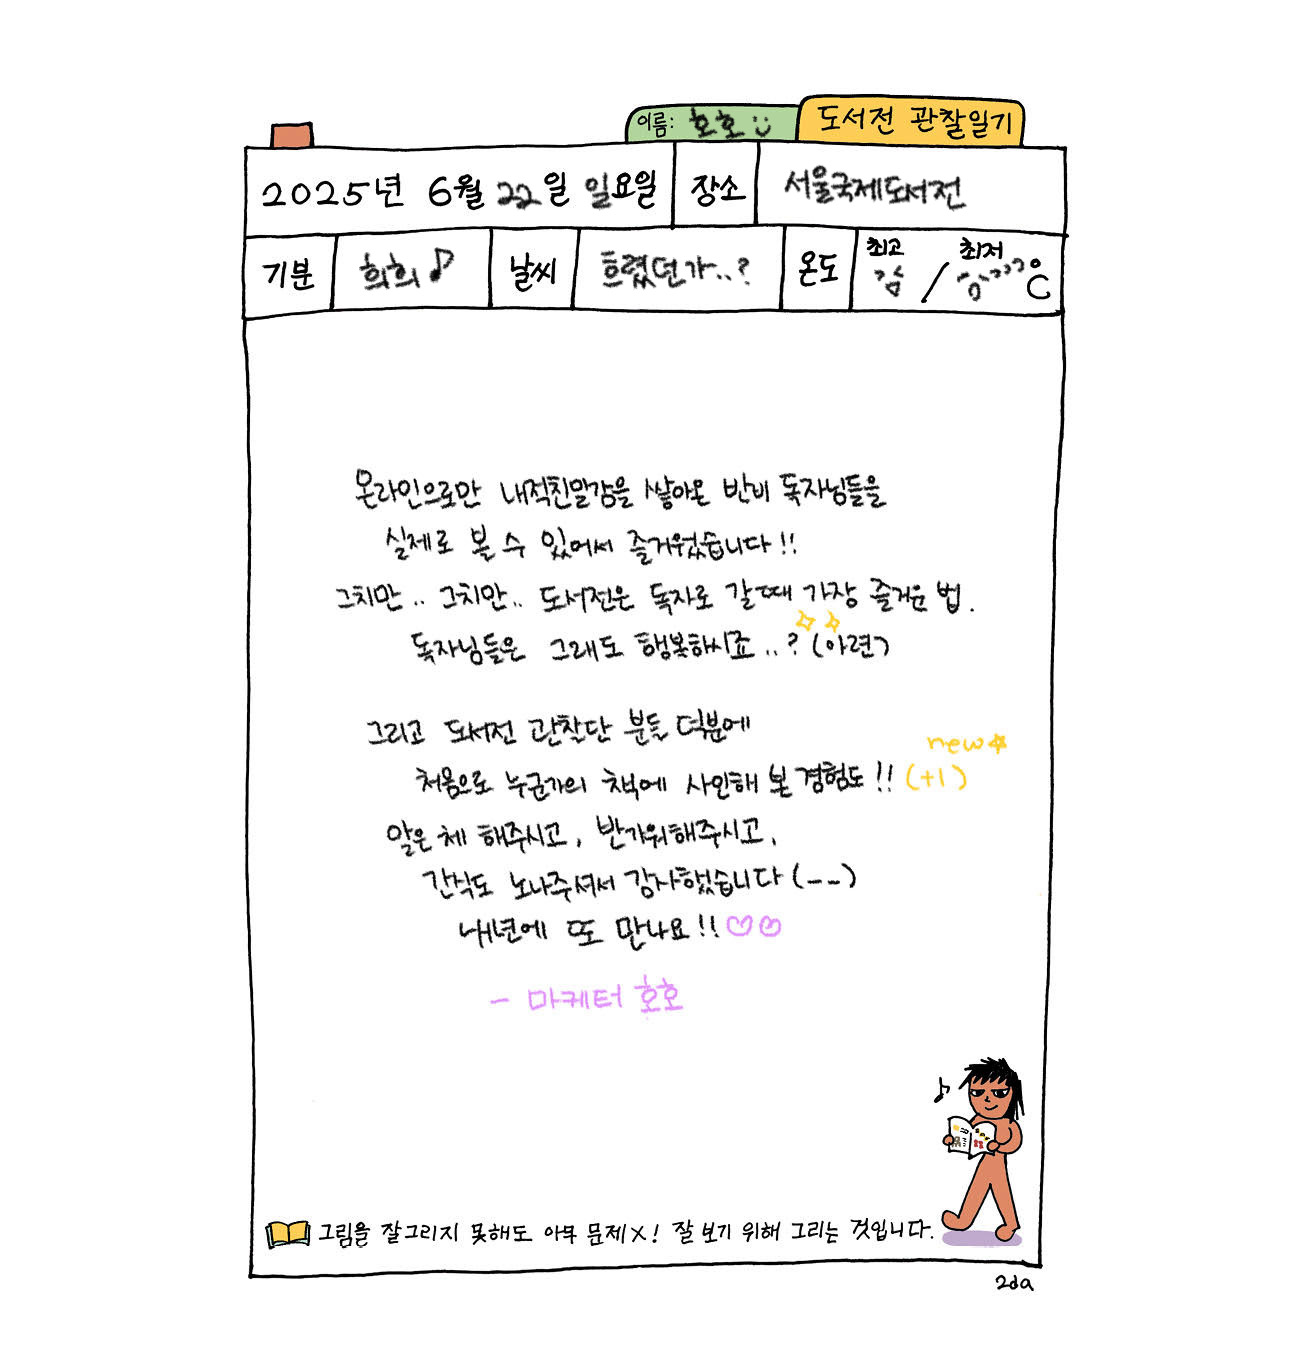 이름: 호호 :)
도서전 관찰일기
2025년 6월 22일 일요일 장소 서울국제도서전
기분 희희♪ 날씨 흐렸던가..? 온도 최고 / 최저 ℃
온라인으로만 내적친밀감을 쌓아온 반비 독자님들을
실제로 볼 수 있어서 즐거웠습니다!!
그치만.. 그치만.. 도서전은 독자로 갈때 가장 즐거운 법.
독자님들은 그래도 행복하시죠..? (아련)
그리고 도서전 관찰단 분들 덕분에
new☆
처음으로 누군가의 책에 사인해 본 경험도!! (+1)
알은 체 해주시고, 반가워해주시고,
간식도 노나주셔서 감사했습니다 (_ _)
내년에 또 만나요!!♡♡
- 마케터 호호
그림을 잘그리지 못해도 아무 문제X! 잘 보기 위해 그리는 것입니다.
2da